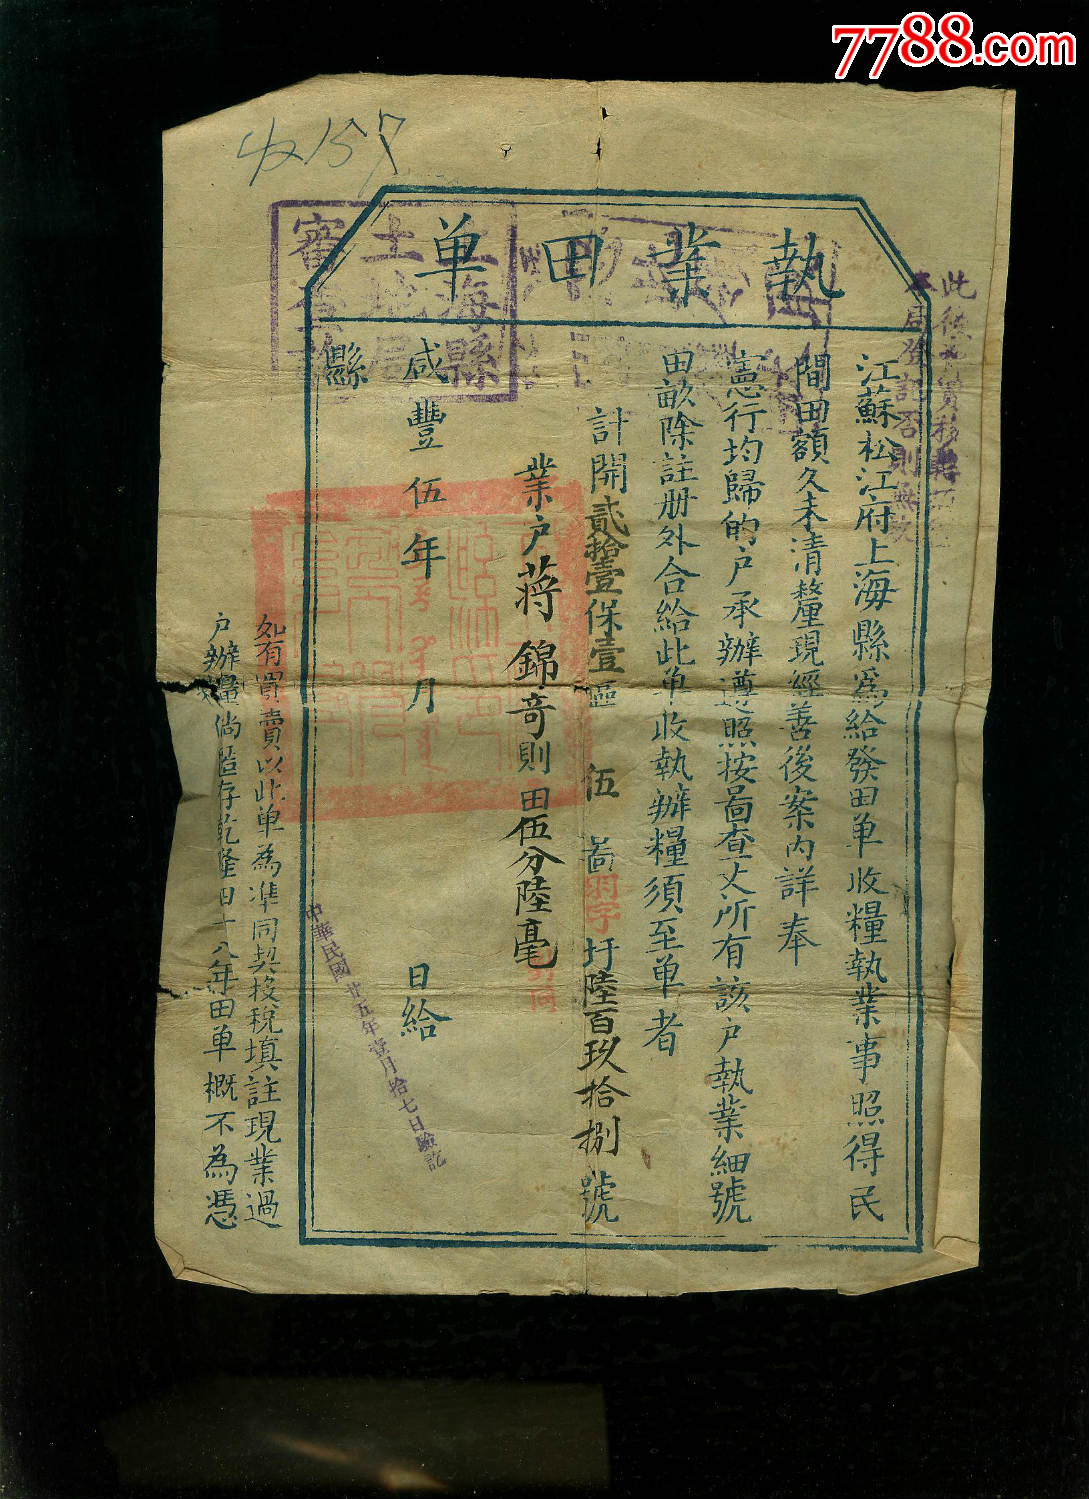 7788.com
執業田單
江蘇松江府上海縣爲給發田單收糧執業事照得民
間田額久未清釐現經善後案內詳奉
憲行均歸的户承辦遵照按啚查丈所有該户執業細號
田畝除註册外合給此单收執辦糧須至单者
計開貳拾壹保壹區 伍 啚羽字圩陸百玖拾捌號
業户蔣錦奇則田伍分陸毫
咸豐伍年 月 日給
縣
如有買賣以此单為准同契投税填註現業過
户辦糧倘匿存乾隆四十八年田单概不為憑
上海縣
土地局
審查
中華民國廿五年壹月拾七日驗訖